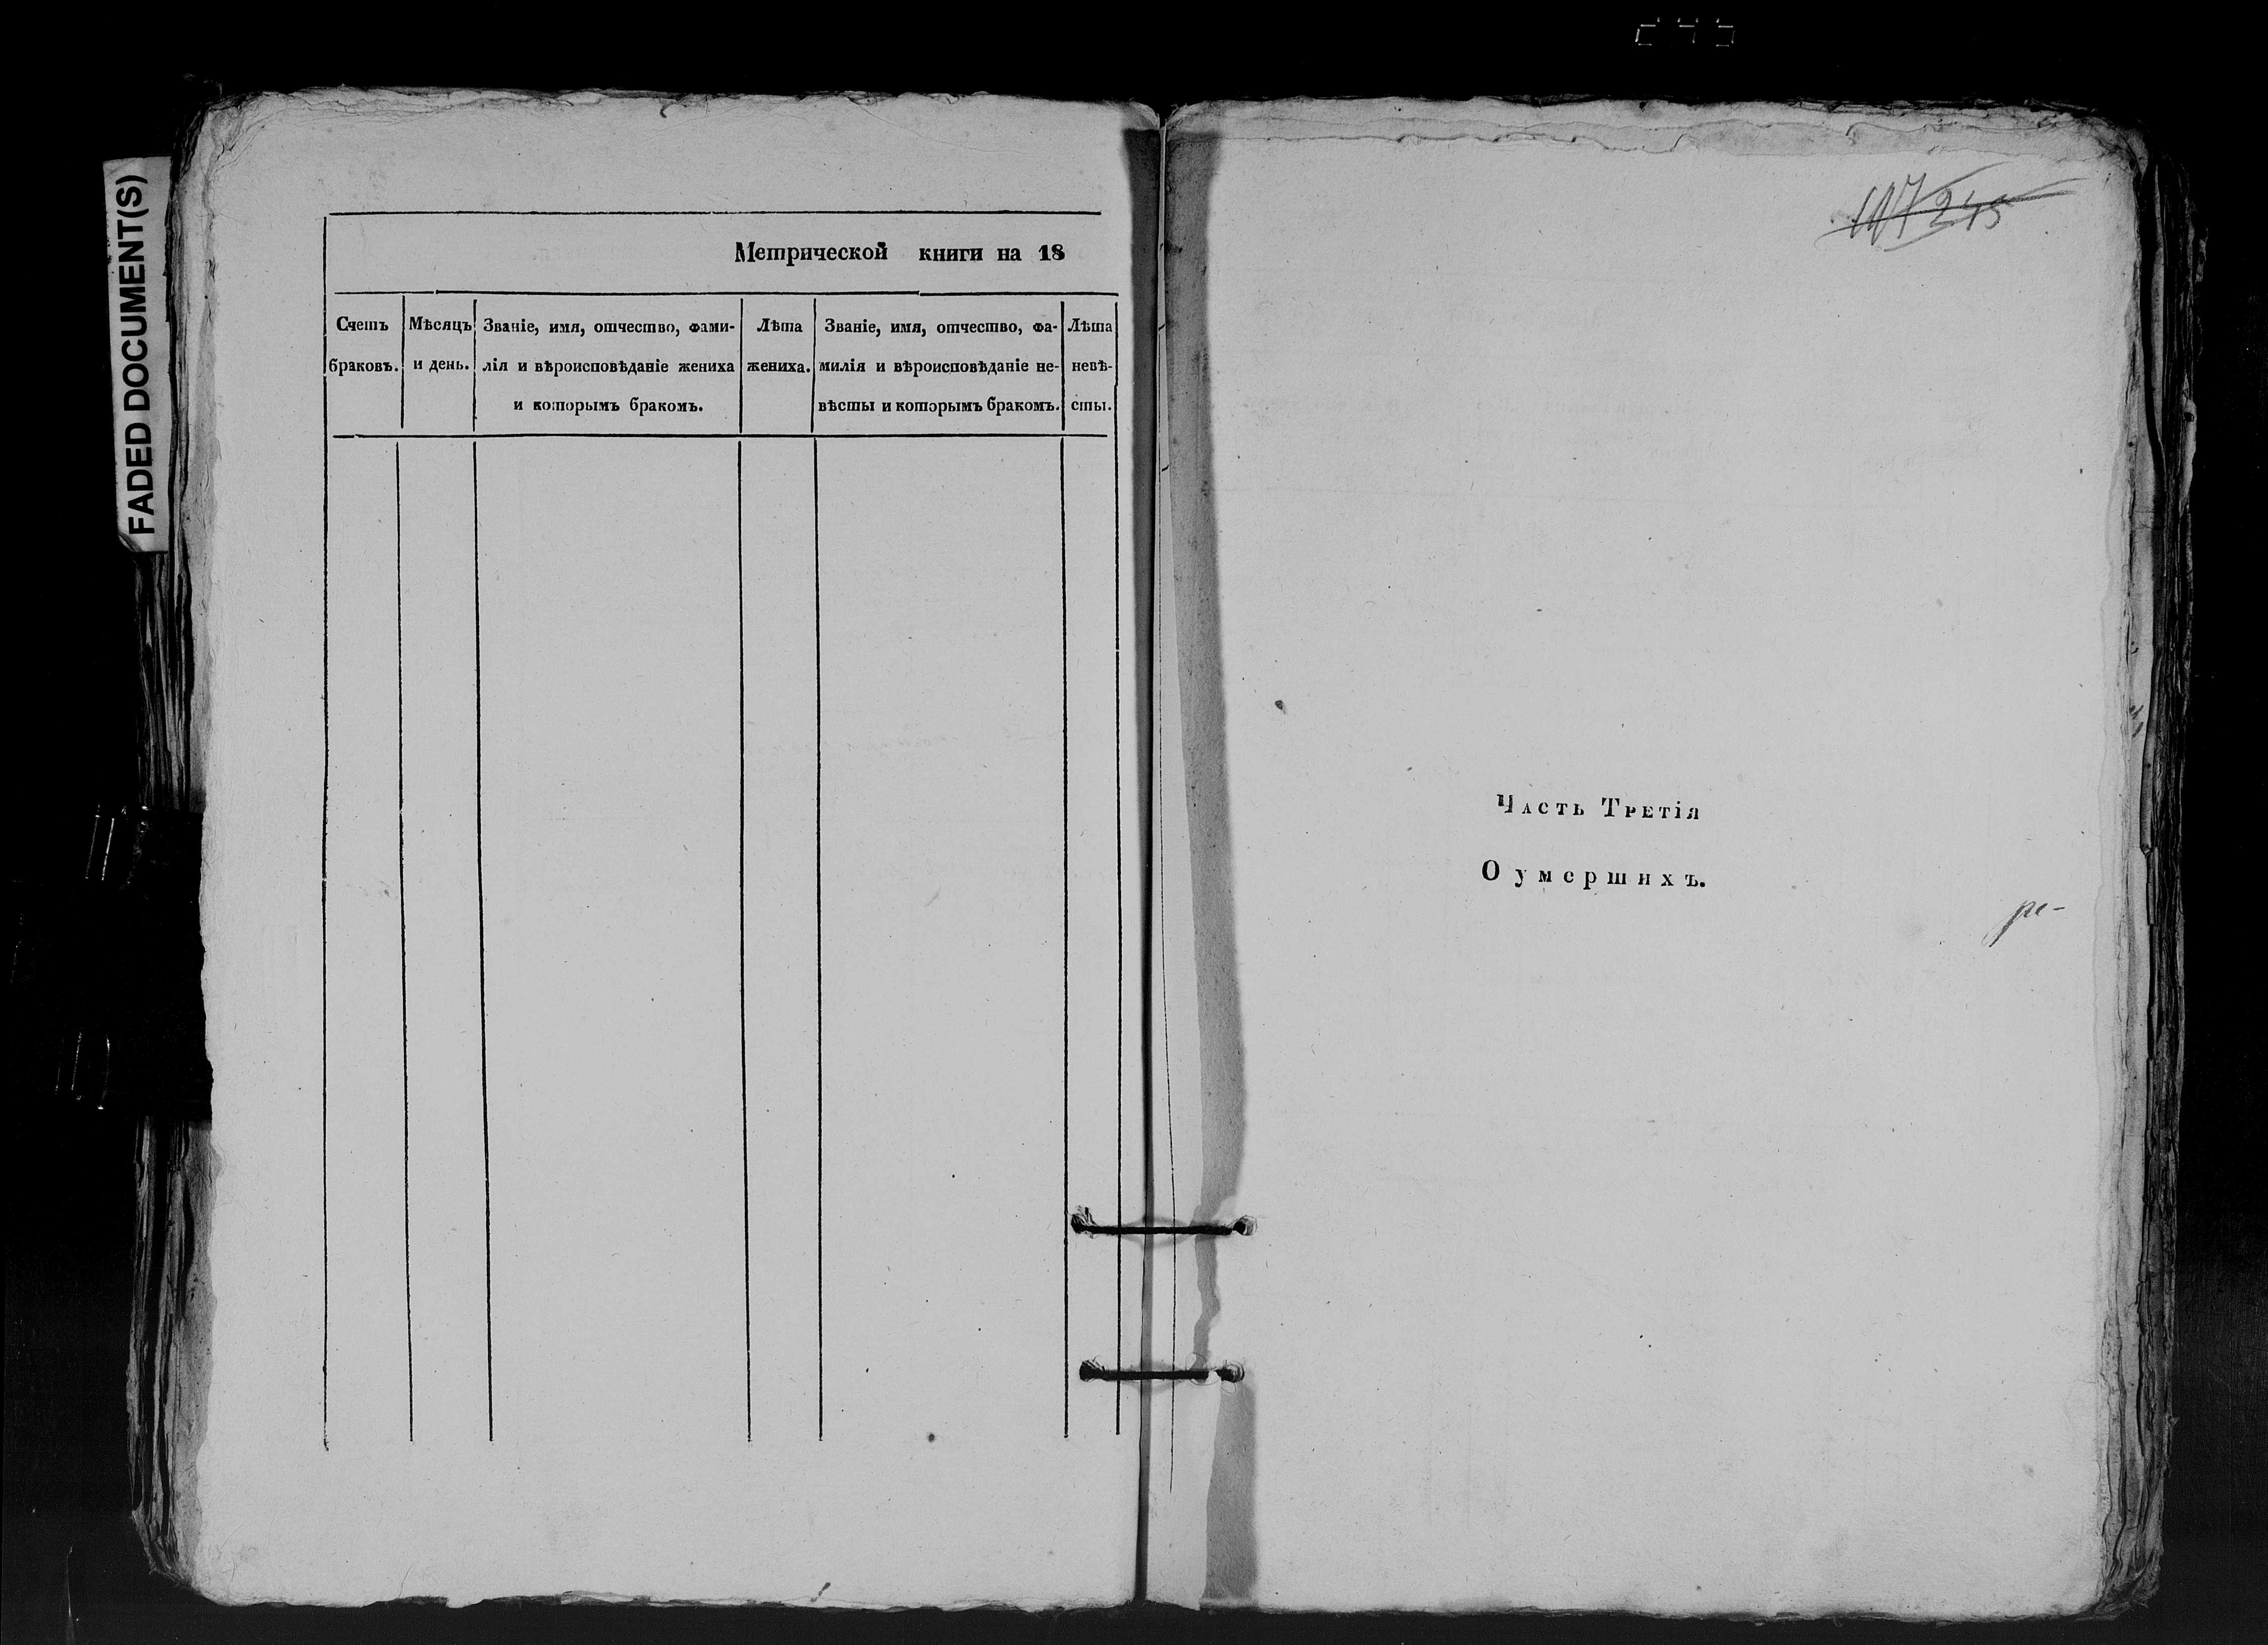 245
FADED DOCUMENT(S)
Метрической книги на 18
Счетъ браковъ.
Мѣсяцъ и день.
Званіе, имя, отчество, фами-
лія и вѣроисповѣданіе жениха
и которымъ бракомъ.
Лѣта
жениха.
Званіе, имя, отчество, фа-
милія и вѣроисповѣданіе не-
вѣсты и которымъ бракомъ.
Лѣта
невѣ-
сты.
245
Часть Третія
О умершихъ.
ре-